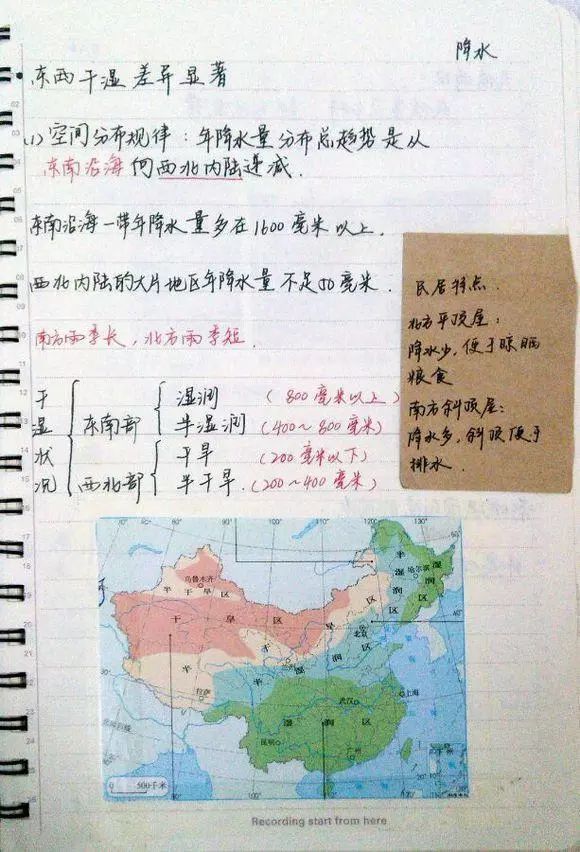 降水
东西干湿差异显著
(1) 空间分布规律：年降水量分布总趋势是从
东南沿海向西北内陆递减.
东南沿海一带年降水量多在1600毫米以上.
西北内陆的大片地区年降水量不足50毫米.
南方雨季长，北方雨季短.
干湿状况
东南部
湿润 (800毫米以上)
半湿润 (400～800毫米)
西北部
干旱 (200毫米以下)
半干旱. (200～400毫米)
民居特点.
北方平顶屋：
降水少，便于晾晒
粮食
南方斜顶屋：
降水多，斜顶便于
排水.
70°
80°
90°
100°
110°
120°
130°
50°
40°
乌鲁木齐
半干旱区
干旱区
半干旱区
半湿润区
湿润区
半湿润区
湿润区
哈尔滨
北京
拉萨
武汉
上海
昆明
广州
0 500千米
90°
100°
110°
Recording start from here